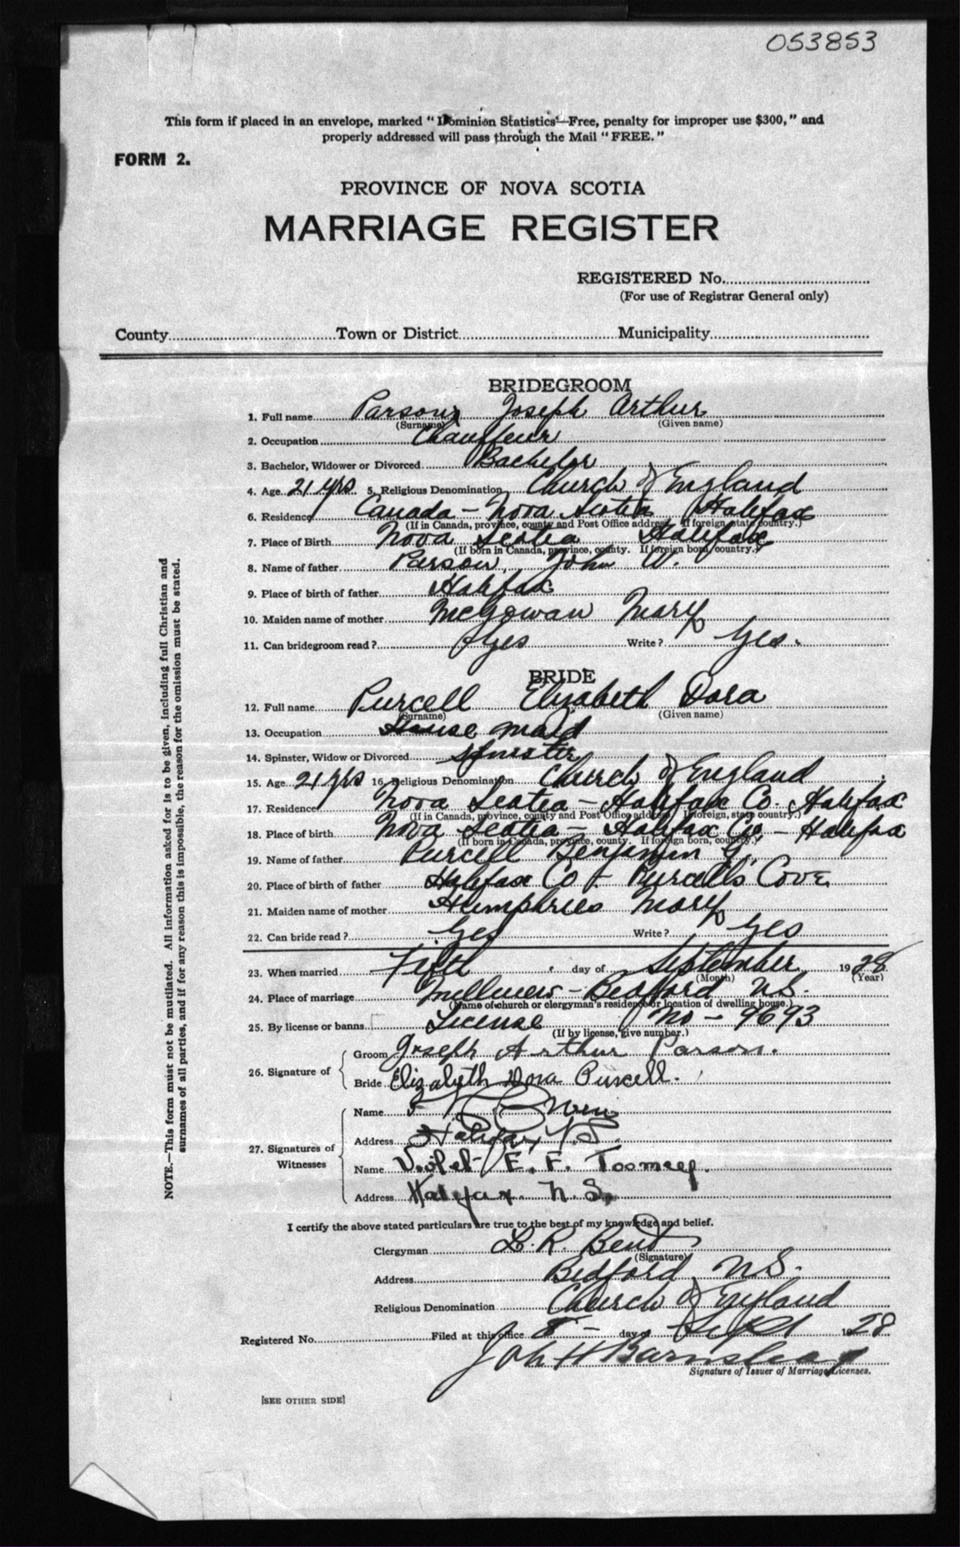 053853
This form if placed in an envelope, marked "Dominion Statistics—Free, penalty for improper use $300," and
properly addressed will pass through the Mail "FREE."
FORM 2.
PROVINCE OF NOVA SCOTIA
MARRIAGE REGISTER
REGISTERED No.
(For use of Registrar General only)
County Town or District Municipality
BRIDEGROOM
1. Full name Parsons Joseph Arthur
(Surname) (Given name)
2. Occupation Chauffeur
3. Bachelor, Widower or Divorced Bachelor
4. Age 21 yrs 5. Religious Denomination Church of England
6. Residence Canada - Nova Scotia Halifax
(If in Canada, province, county and Post Office address. If foreign, state country.)
7. Place of Birth Nova Scotia Halifax
(If born in Canada, province, county. If foreign born, country.)
8. Name of father Parson, John W.
9. Place of birth of father Halifax
10. Maiden name of mother McGowan Mary
11. Can bridegroom read? Yes Write? Yes.
BRIDE
12. Full name Purcell Elizabeth Dora
(Surname) (Given name)
13. Occupation House maid
14. Spinster, Widow or Divorced Spinster
15. Age 21 yrs 16. Religious Denomination Church of England
17. Residence Nova Scotia - Halifax Co. Halifax
(If in Canada, province, county and Post Office address. If foreign, state country.)
18. Place of birth Nova Scotia - Halifax Co. - Halifax
(If born in Canada, province, county. If foreign born, country.)
19. Name of father Purcell Benjamin G.
20. Place of birth of father Halifax Co - Purcells Cove
21. Maiden name of mother Humphries Mary
22. Can bride read? Yes Write? Yes
23. When married Fifth day of September 1928
(Month) (Year)
24. Place of marriage Bedford N.S.
(Name of church or clergyman's residence or location of dwelling house.)
25. By license or banns License No - 9693
(If by license, give number.)
26. Signature of
Groom Joseph Arthur Parson.
Bride Elizabyth Dora Purcell.
27. Signatures of
Witnesses
Name
Address Halifax N.S.
Name Violet E. F. Toomey.
Address Halifax. N.S.
I certify the above stated particulars are true to the best of my knowledge and belief.
Clergyman L. R. Bent
(Signature)
Address Bedford N.S.
Religious Denomination Church of England
Registered No. Filed at this office 8 - day of Sept 1928
John H Barnstead
Signature of Issuer of Marriage Licenses.
[SEE OTHER SIDE]
NOTE.—This form must not be mutilated. All information asked for is to be given, including full Christian and
surnames of all parties, and if for any reason this is impossible, the reason for the omission must be stated.